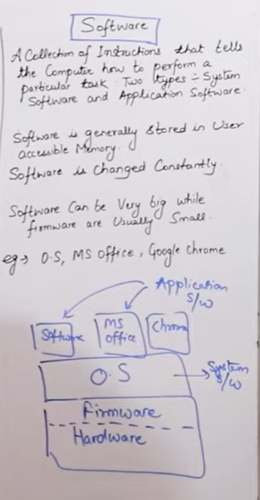 Software
A Collection of Instructions that tells
the Computer how to perform a
particular task. Two types :- System
Software and Application Software.
Software is generally stored in User
accessible Memory.
Software is changed Constantly.
Software Can be Very big while
firmware are Usually Small.
eg → O.S, MS Office, Google Chrome
Application
S/W
Software
MS
office
Chrome
O.S
System
S/W
Firmware
Hardware